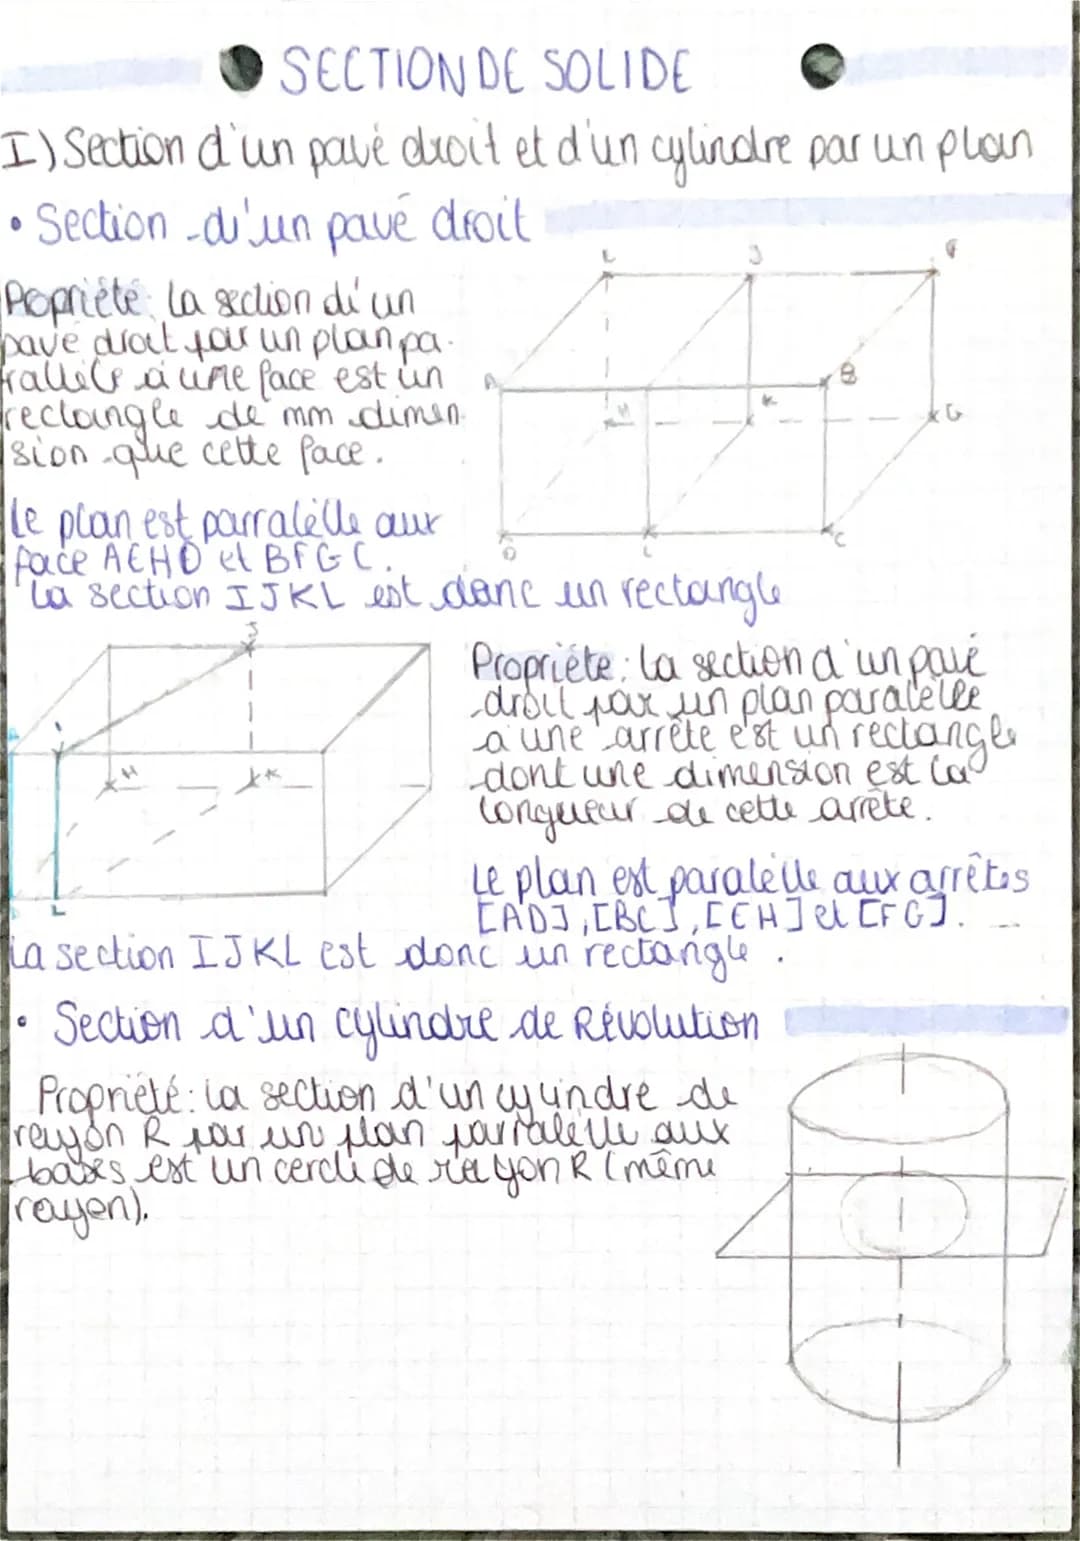 SECTION DE SOLIDE
I) Section d'un pavé droit et d'un cylindre par un plan
• Section d'un pavé droit
Popriété: La section d'un
pavé droit par un plan pa-
rallèle à une face est un
rectangle de mm dimen
sion que cette face.
Le plan est parralèlle aux
face AEHD et BFGC.
La section IJKL est donc un rectangle
E
J
F
A
B
H
K
G
D
L
C
J
A
I
H
K
D
L
Propriété: La section d'un pavé
droit par un plan paralèlle
à une arrête est un rectangle
dont une dimension est la
longueur de cette arrête.
Le plan est paralèlle aux arrêtes
[AD], [BC], [EH] et [FG].
La section IJKL est donc un rectangle.
• Section d'un cylindre de Révolution
Propriété: La section d'un cylindre de
rayon R par un plan parralèlle aux
bases est un cercle de rayon R (même
rayon).